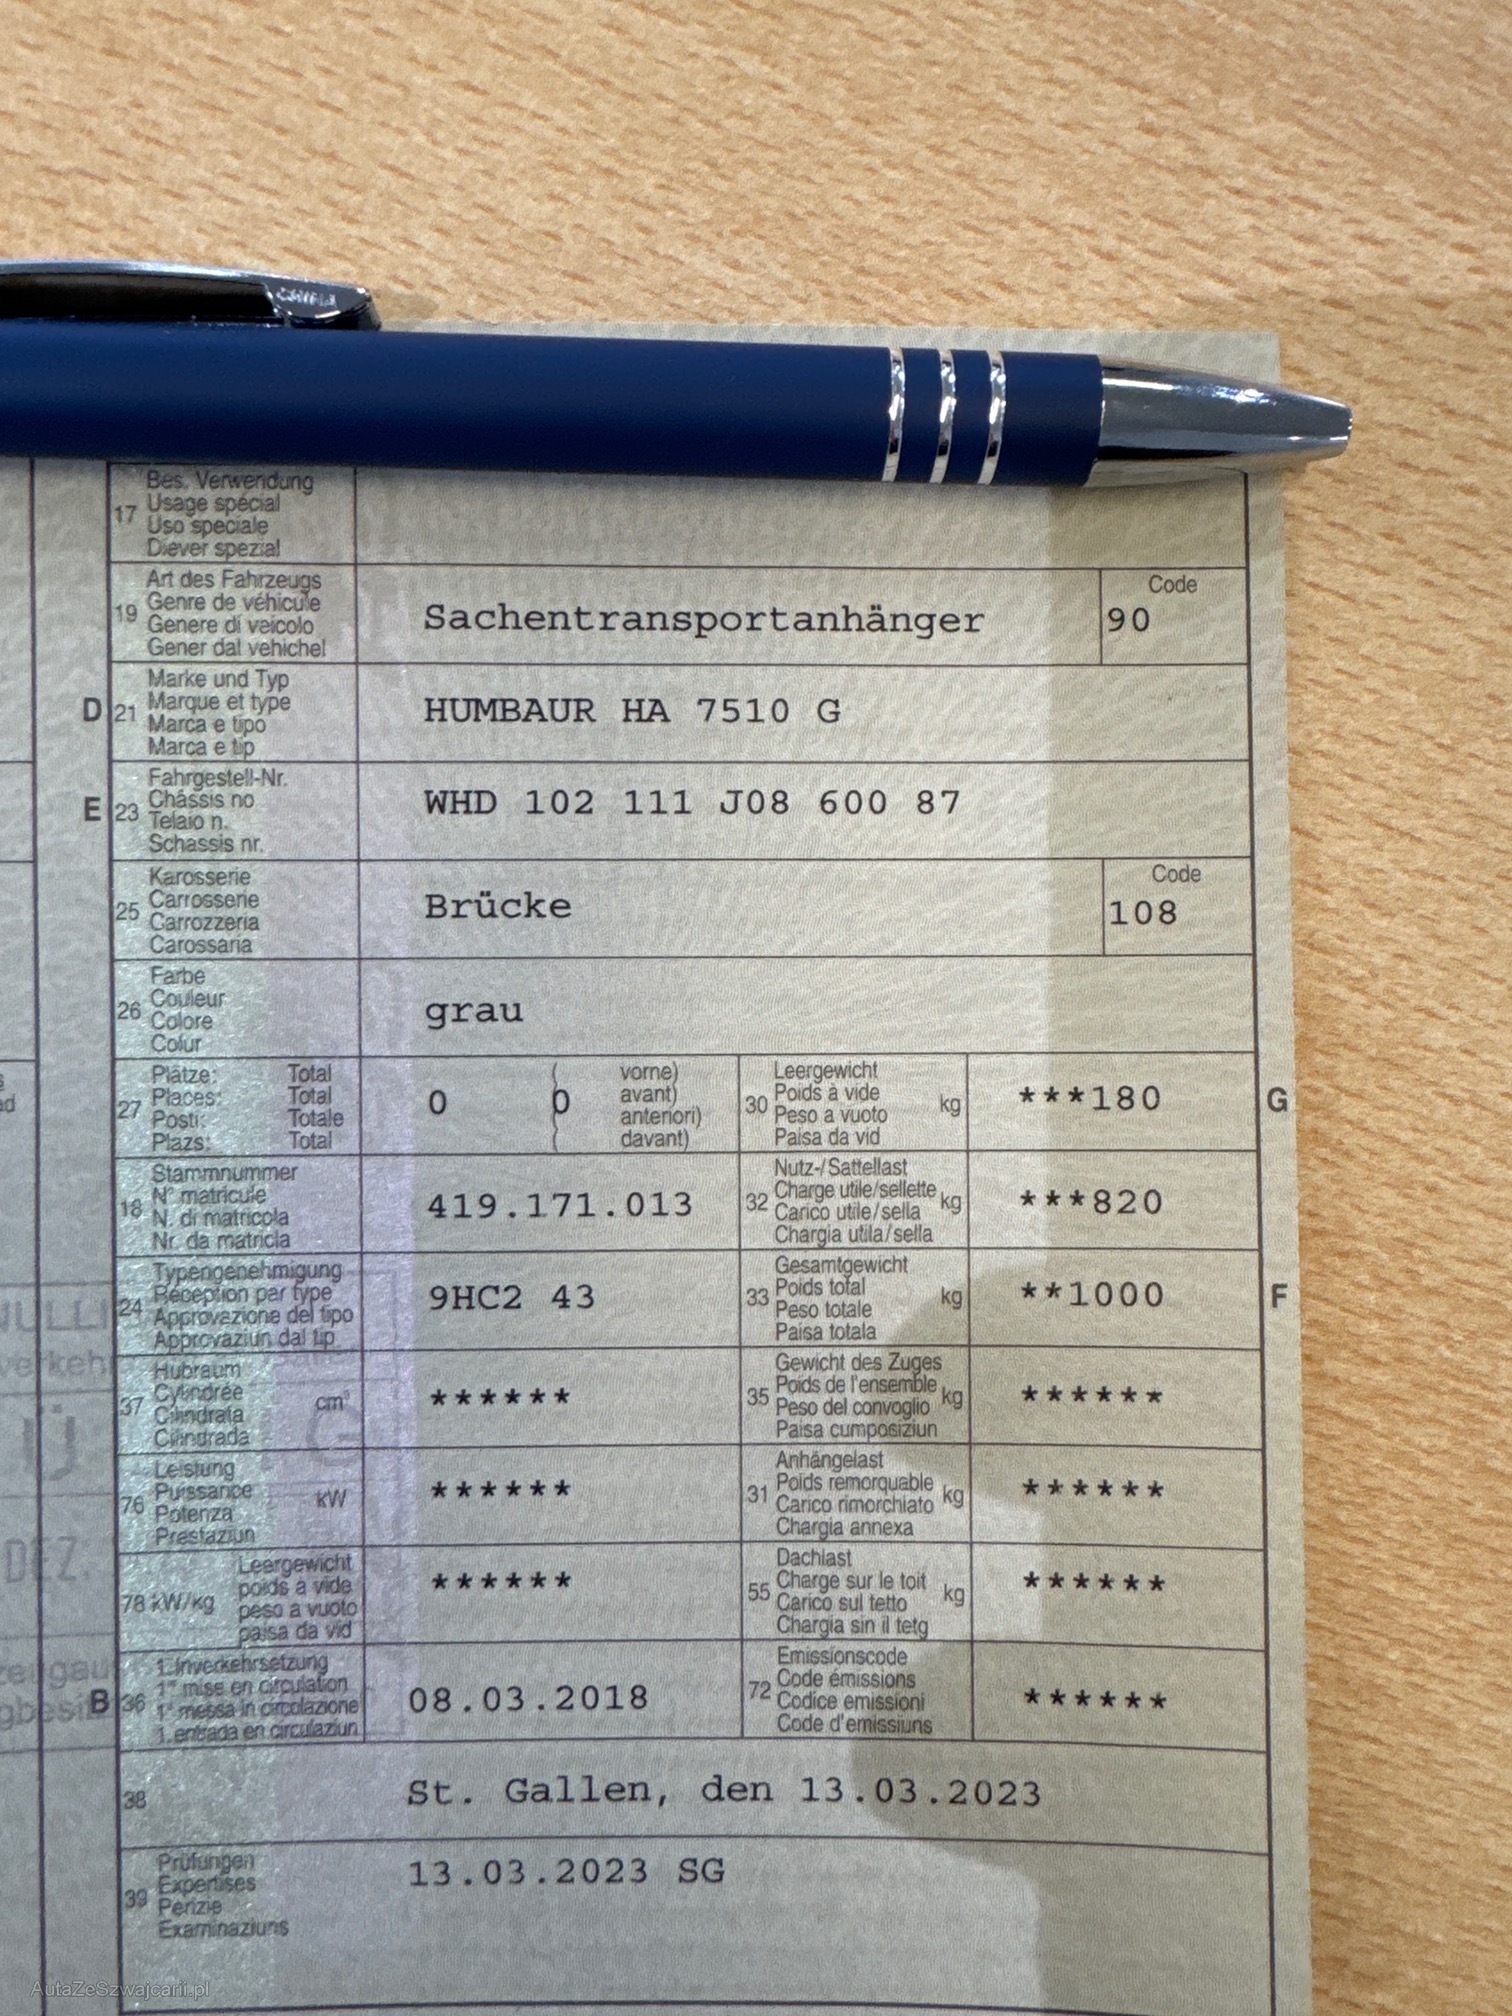 Bes. Verwendung
17 Usage spécial
Uso speciale
Diever spezial
Art des Fahrzeugs
19 Genre de véhicule
Genere di veicolo
Gener dal vehichel
Sachentransportanhänger
Code
90
Marke und Typ
D 21 Marque et type
Marca e tipo
Marca e tip
HUMBAUR HA 7510 G
Fahrgestell-Nr.
E 23 Châssis no
Telaio n.
Schassis nr.
WHD 102 111 J08 600 87
Karosserie
25 Carrosserie
Carrozzeria
Carossaria
Brücke
Code
108
Farbe
26 Couleur
Colore
Colur
grau
Plätze: Total
27 Places: Total
Posti: Totale
Plazs: Total
0 ( 0 vorne)
avant)
anteriori)
( davant)
Leergewicht
30 Poids à vide kg
Peso a vuoto
Paisa da vid
***180 G
Stammnummer
18 N° matricule
N. di matricola
Nr. da matricla
419.171.013
Nutz-/Sattellast
32 Charge utile/sellette kg
Carico utile/sella
Chargia utila/sella
***820
Typengenehmigung
24 Réception par type
Approvazione del tipo
Approvaziun dal tip
9HC2 43
Gesamtgewicht
33 Poids total kg
Peso totale
Paisa totala
**1000 F
Hubraum
37 Cylindrée cm³
Cilindrata
Cilindrada
******
Gewicht des Zuges
35 Poids de l'ensemble kg
Peso del convoglio
Paisa cumposiziun
******
Leistung
76 Puissance kW
Potenza
Prestaziun
******
Anhängelast
31 Poids remorquable kg
Carico rimorchiato
Chargia annexa
******
Leergewicht
78 kW/kg poids à vide
peso a vuoto
paisa da vid
******
Dachlast
55 Charge sur le toit kg
Carico sul tetto
Chargia sin il tetg
******
1. Inverkehrsetzung
B 36 1re mise en circulation
1a messa in circolazione
1. entrada en circulaziun
08.03.2018
Emissionscode
72 Code émissions
Codice emissioni
Code d'emissiuns
******
38
St. Gallen, den 13.03.2023
Prüfungen
39 Expertises
Perizie
Examinaziuns
13.03.2023 SG
AutaZeSzwajcarii.pl